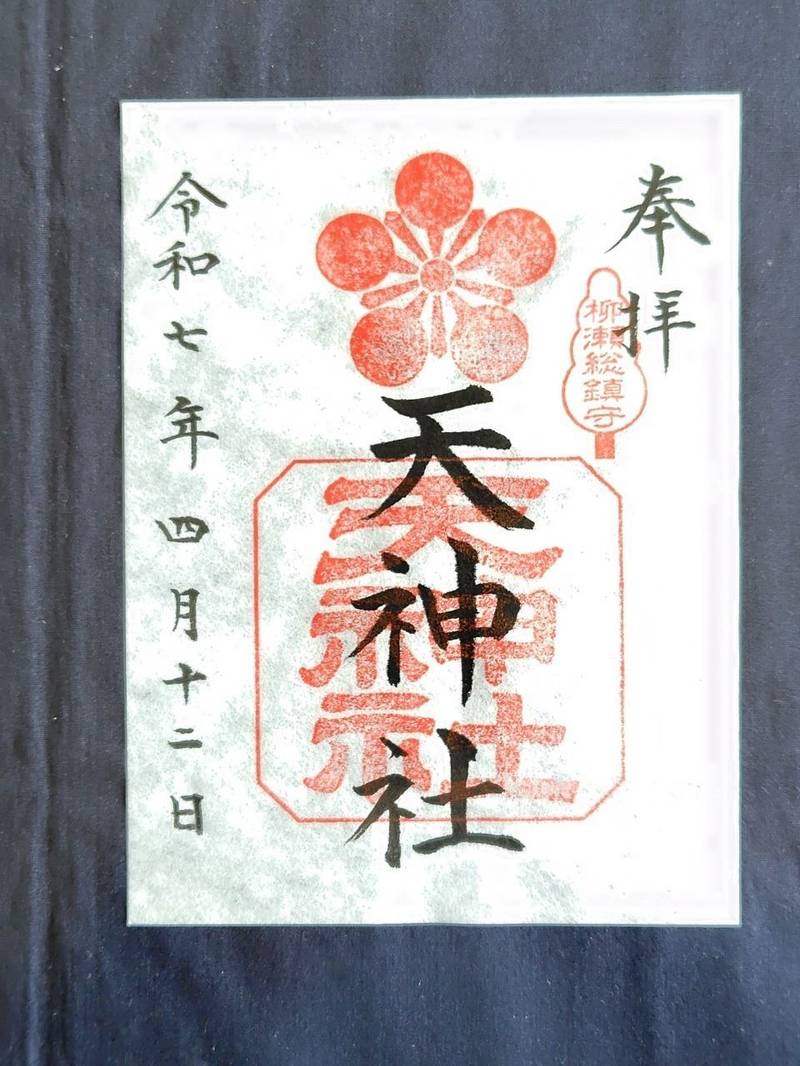 奉拝
柳瀬総鎮守
天神社
天神社
令和七年四月十二日